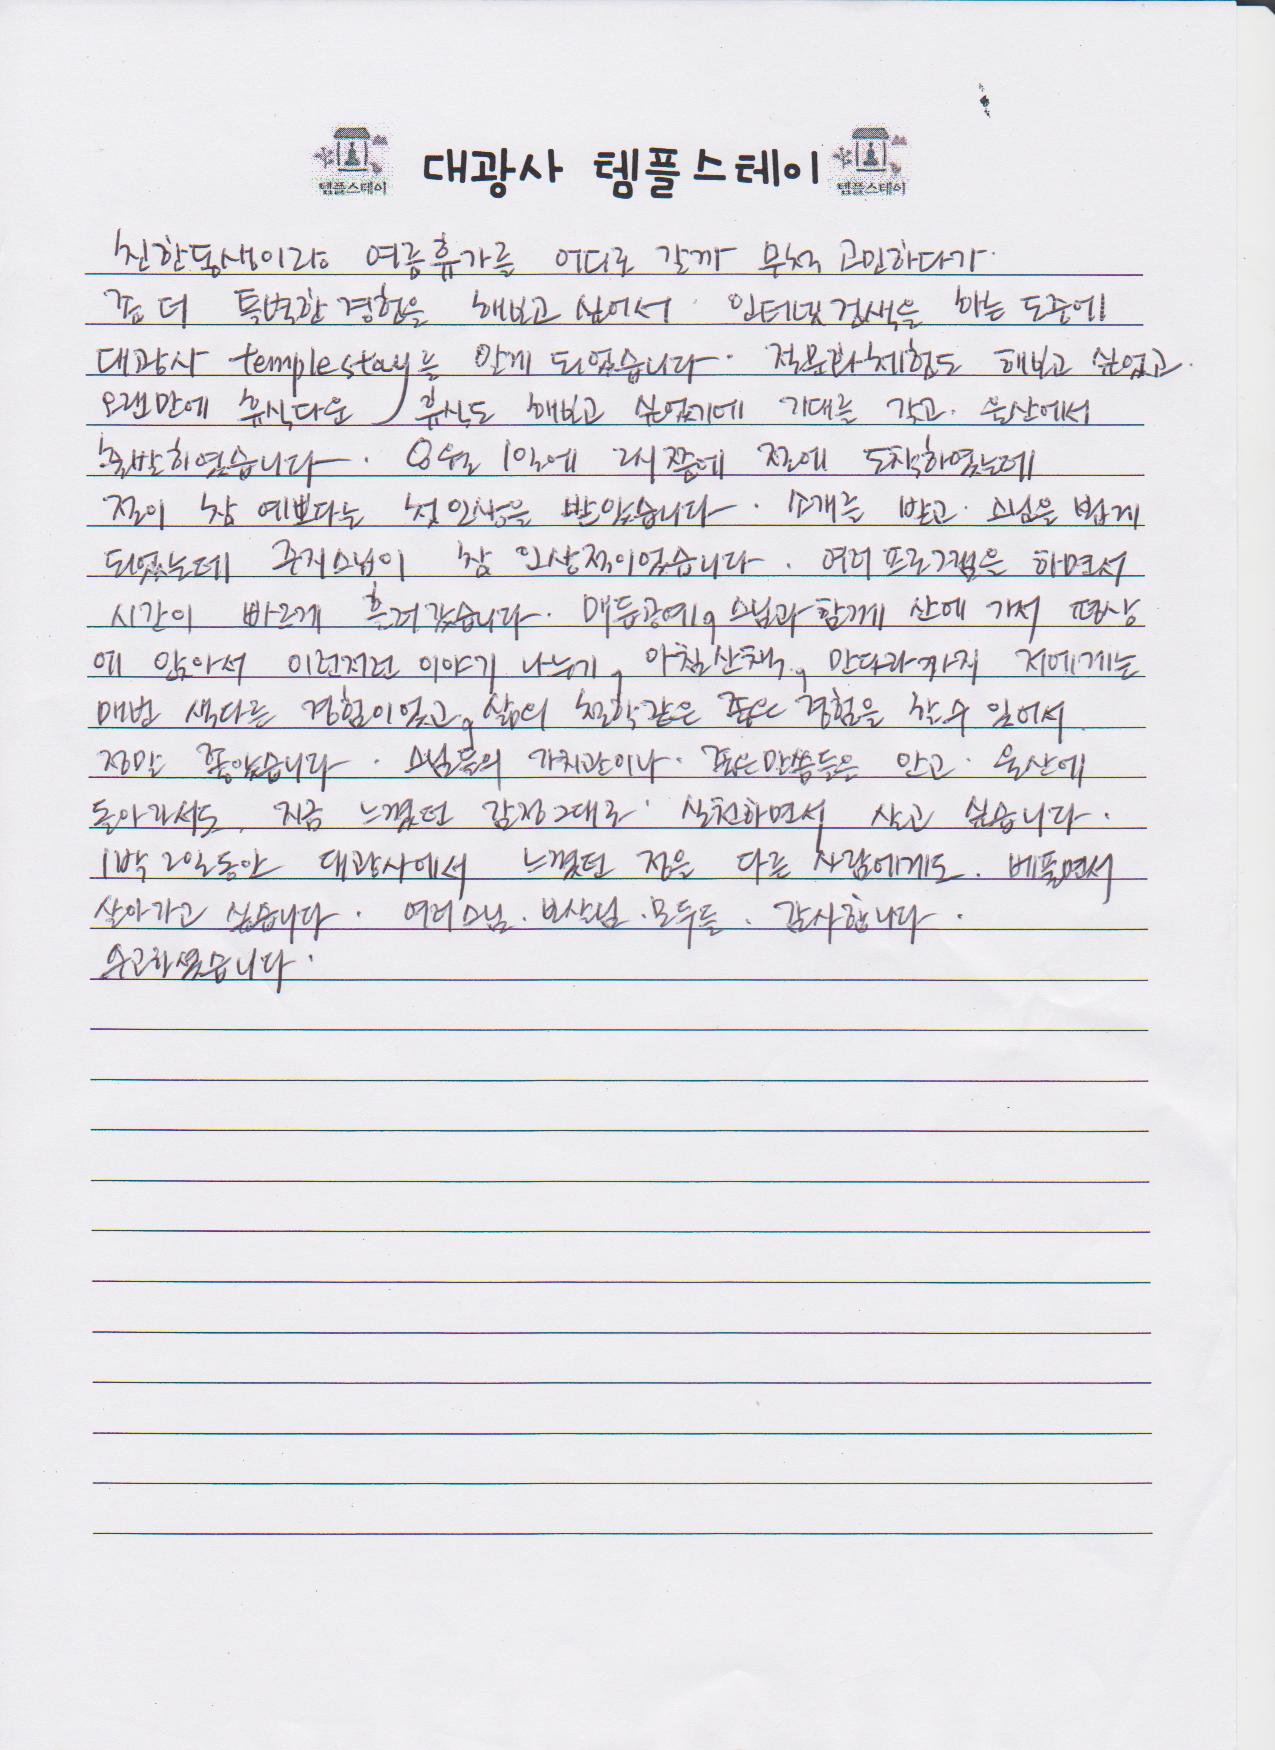 대광사 템플스테이
템플스테이
템플스테이
친한동생이랑 여름휴가를 어디로 갈까 무척 고민하다가
좀 더 특별한 경험을 해보고 싶어서 인터넷검색을 하는 도중에
대광사 temple stay를 알게 되었습니다. 절문화체험도 해보고 싶었고
오랜만에 휴식다운 휴식도 해보고 싶었기에 기대를 갖고 울산에서
출발하였습니다. 8월 1일에 2시쯤에 절에 도착하였는데
절이 참 예쁘다는 첫인상을 받았습니다. 소개를 받고 스님을 뵙게
되었는데 주지스님이 참 인상적이었습니다. 여러프로그램을 하면서
시간이 빠르게 흘러갔습니다. 매듭공예, 스님과 함께 산에 가서 평상
에 앉아서 이런저런 이야기 나누기, 아침산책, 만다라까지 저에게는
매번 색다른 경험이었고, 삶의 철학같은 좋은 경험을 할수 있어서
정말 좋았습니다. 스님들의 가치관이나 좋은말씀들은 안고 울산에
돌아가서도 지금 느꼈던 감정그대로 실천하면서 살고 싶습니다.
1박 2일동안 대광사에서 느꼈던 정을 다른 사람에게도 베풀면서
살아가고 싶습니다. 여러스님. 보살님. 모두들. 감사합니다.
수고하셨습니다.